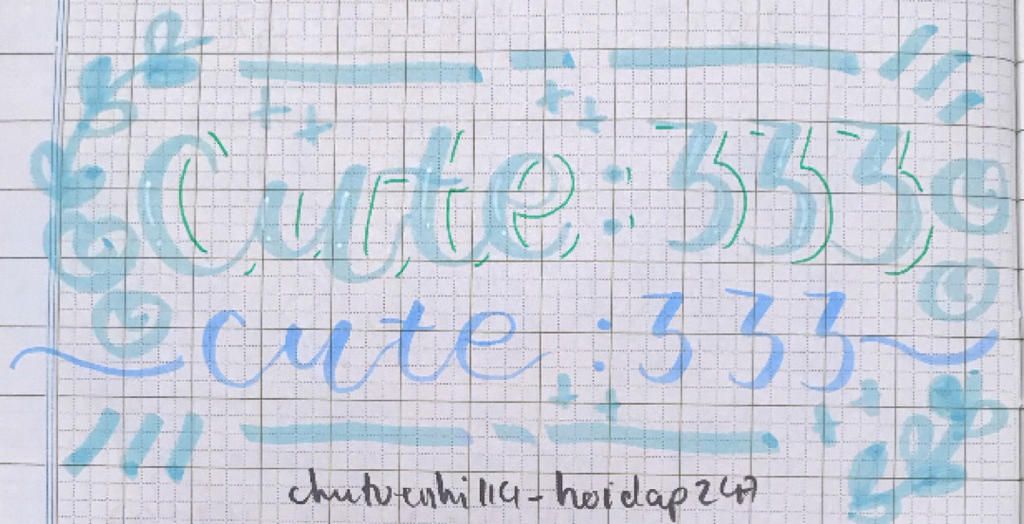 Cute : 333
cute : 333
chutuenhi114 - hoidap247